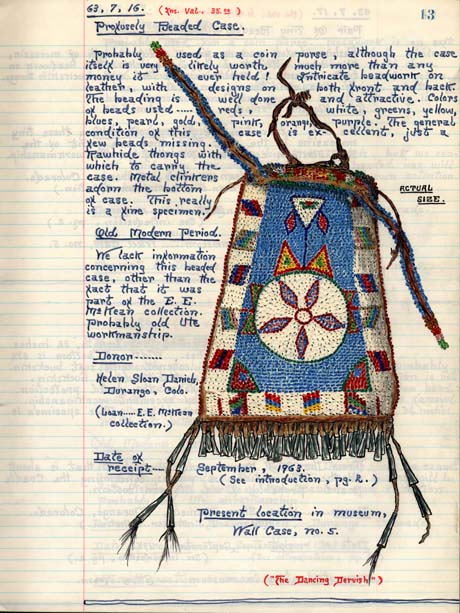 63, 7, 16. (Ins. Val. 35.00)
13
Profusely Beaded Case.
Probably used as a coin purse, although the case
itself is very likely worth, much more than any
money it ever held! Intricate beadwork on
leather, with designs on both front and back.
The beading is well done and attractive. Colors
of beads used..... reds, white, greens, yellow,
blues, pearl, gold, pink, orange, purple. The general
condition of this case is ex-cellent, just a
few beads missing.
Rawhide thongs with
which to carry the
case. Metal clinkers
adorn the bottom
of case. This really
is a fine specimen.
ACTUAL
SIZE.
Old Modern Period.
We lack information
concerning this beaded
case, other than the
fact that it was
part of the E. E.
McKean collection.
Probably old Ute
workmanship.
Donor-------
Helen Sloan Daniels,
Durango, Colo.
(Loan.... E.E. McKean
collection.)
Date of
receipt---- September, 1963.
(See introduction, pg. 2.)
Present location in museum,
Wall Case, no. 5.
("The Dancing Dervish")